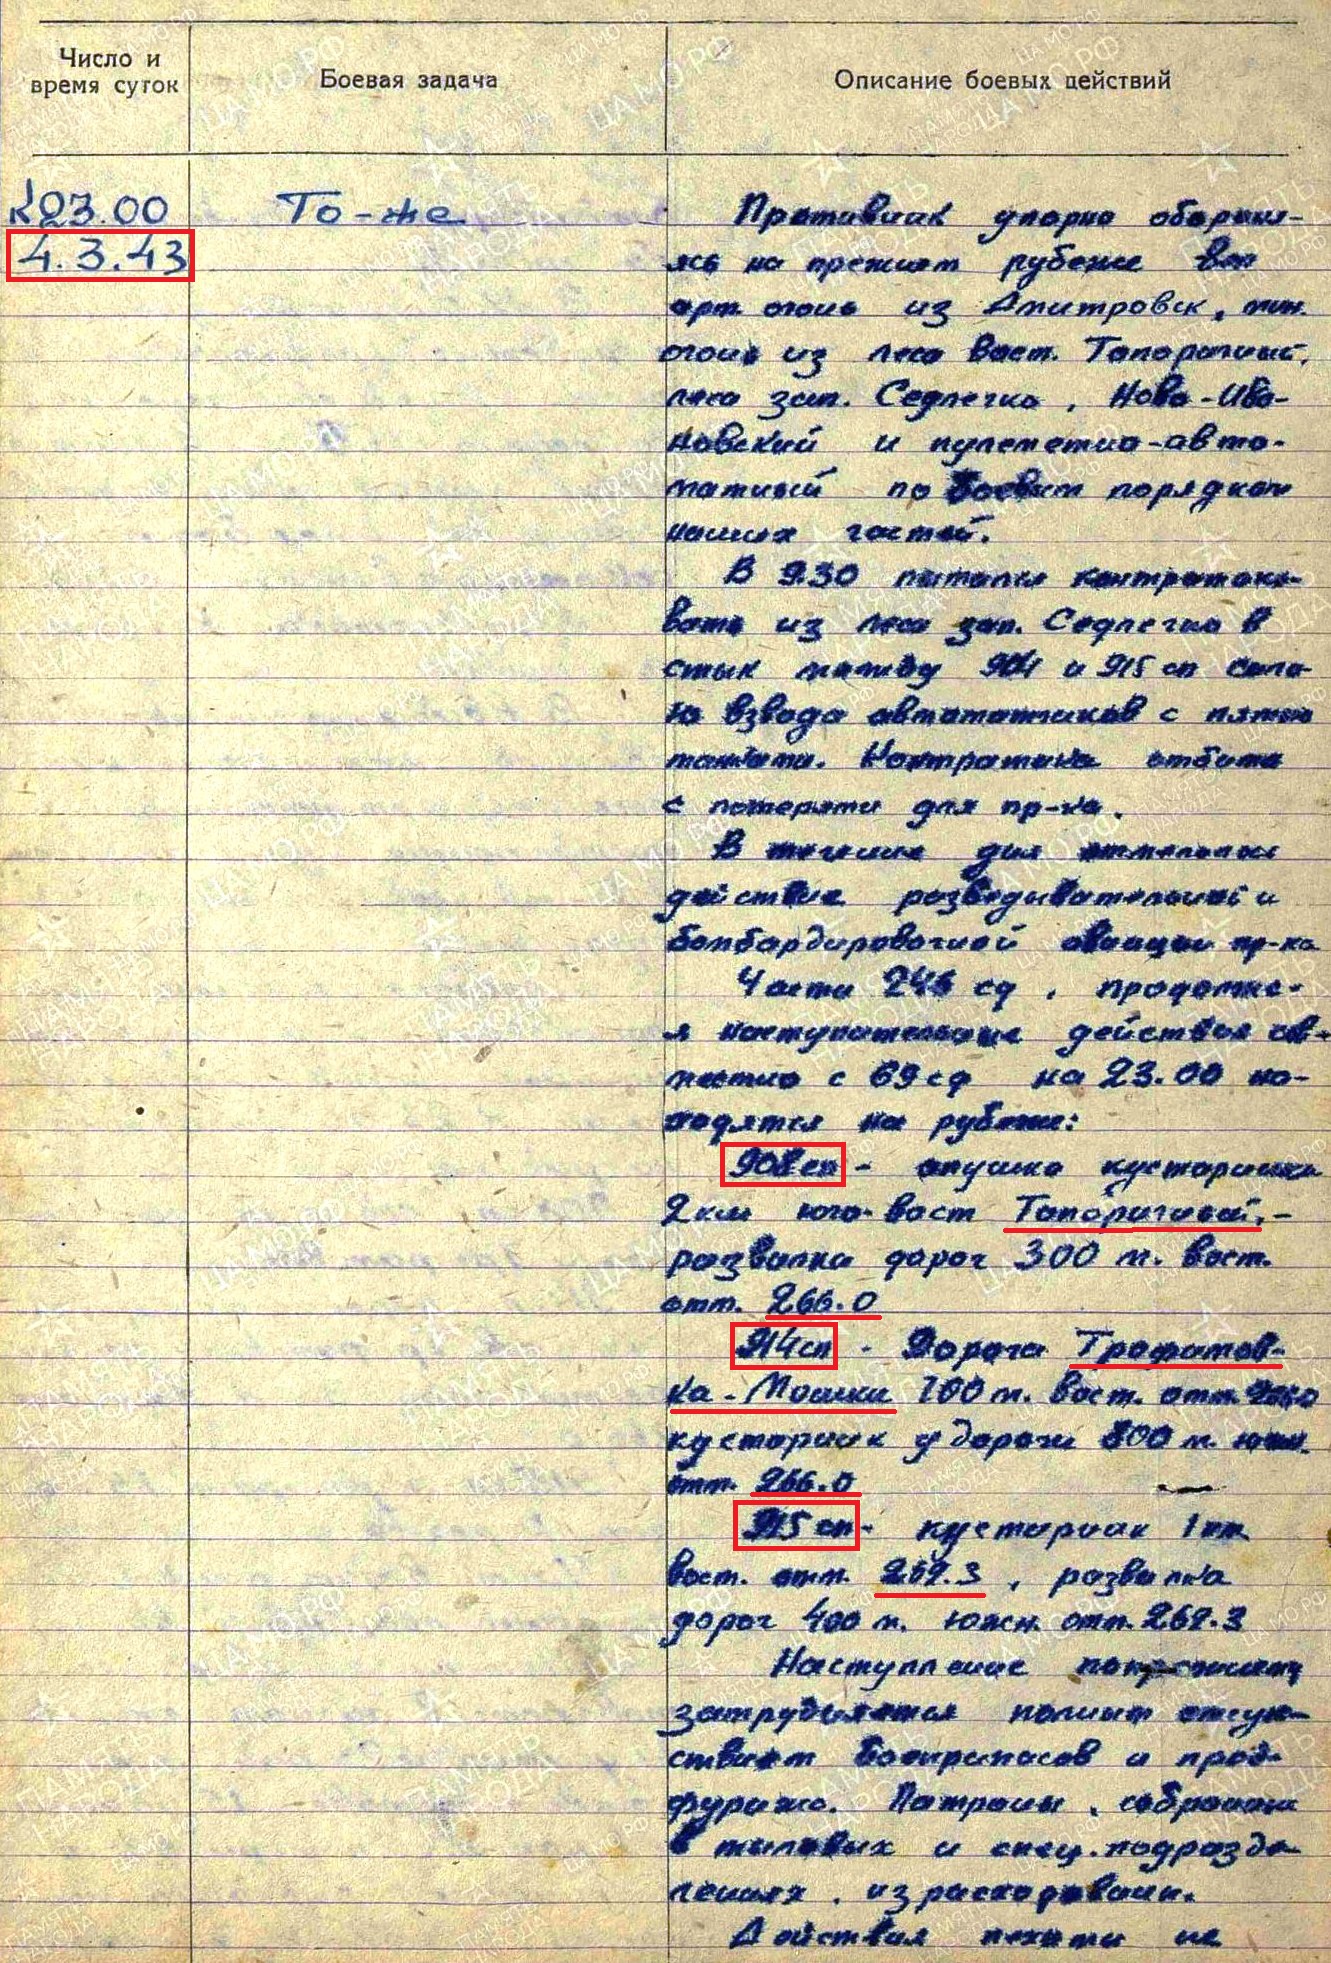 Число и
время суток
Боевая задача
Описание боевых действий
к 23.00
4.3.43
То-же
Противник упорно обороня-
ясь на прежнем рубеже вел
арт. огонь из Дмитровск, мин.
огонь из леса вост. Топоричный,
леса зап. Седлечко, Ново-Ива-
новский и пулеметно-авто-
матный по боевым порядкам
наших частей.
В 9.30 пытался контратако-
вать из леса зап. Седлечко в
стык между 914 и 915 сп сило-
ю взвода автоматчиков с пятью
танками. Контратака отбита
с потерями для пр-ка.
В течение дня отмечалось
действие разведывательной и
бомбардировочной авиации пр-ка
Части 246 сд, продолжа-
я наступательные действия сов-
местно с 69 сд на 23.00 на-
ходятся на рубеже:
908 сп - опушка кустарника
2 км юго-вост Топоричный, -
развилка дорог 300 м. вост.
отм. 266.0
914 сп - Дорога Трофимов-
ка - Мошки 700 м. вост. отм. 266.0
кустарник у дороги 800 м. южн.
отм. 266.0
915 сп - кустарник 1 км
вост. отм. 269.3, развилка
дорог 400 м. южн. отм. 269.3
Наступление
затрудняется полным отсут-
ствием боеприпасов и прод-
фуража. Патроны, собранные
в тыловых и спец. подразде-
лениях, израсходованы.
Действия пехоты не